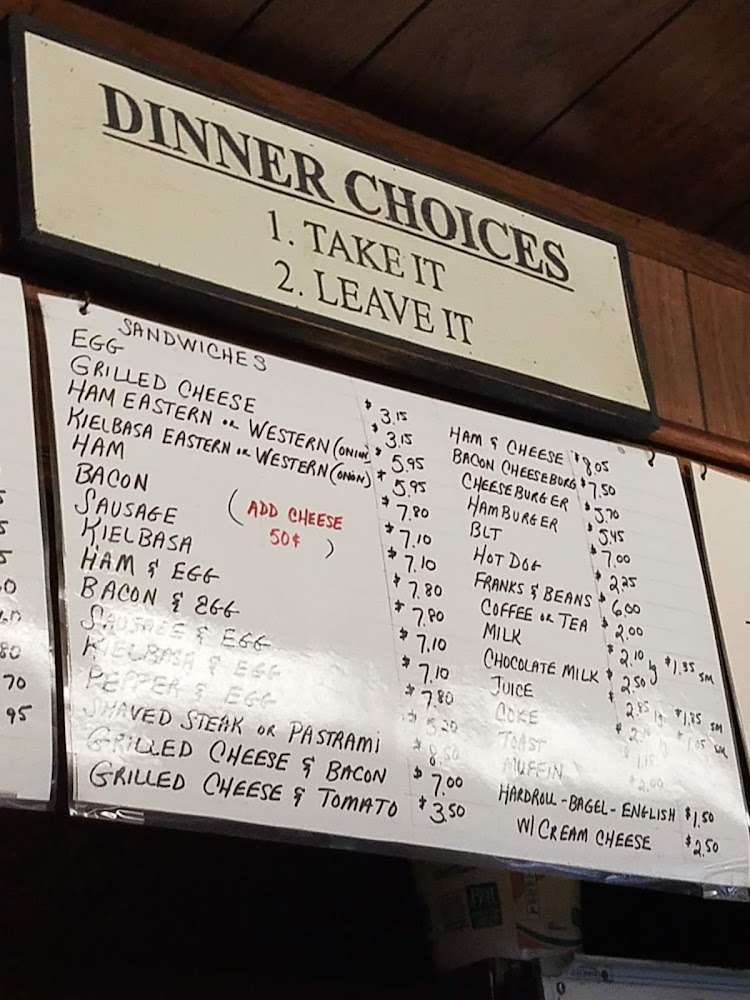 DINNER CHOICES
1. TAKE IT
2. LEAVE IT
SANDWICHES
EGG $3.15
GRILLED CHEESE $3.15
HAM EASTERN OR WESTERN (ONION) $5.95
KIELBASA EASTERN OR WESTERN (ONION) $5.95
HAM $7.80
BACON $7.10
SAUSAGE $7.10
(ADD CHEESE
50¢)
KIELBASA $7.80
HAM & EGG $7.80
BACON & EGG $7.10
SAUSAGE & EGG $7.10
KIELBASA & EGG $7.80
PEPPER & EGG $5.20
SHAVED STEAK OR PASTRAMI $8.50
GRILLED CHEESE & BACON $7.00
GRILLED CHEESE & TOMATO $3.50
HAM & CHEESE $8.05
BACON CHEESEBURG $7.50
CHEESEBURGER $5.70
HAMBURGER $5.45
BLT $7.00
HOT DOG $2.25
FRANKS & BEANS $6.00
COFFEE OR TEA $2.00
MILK $2.10 lg $1.85 SM
CHOCOLATE MILK $2.50
JUICE $2.85 lg $1.85 SM
COKE lg $1.05 SM
TOAST
MUFFIN $2.00
HARDROLL - BAGEL - ENGLISH $1.50
W/ CREAM CHEESE $2.50
70
95